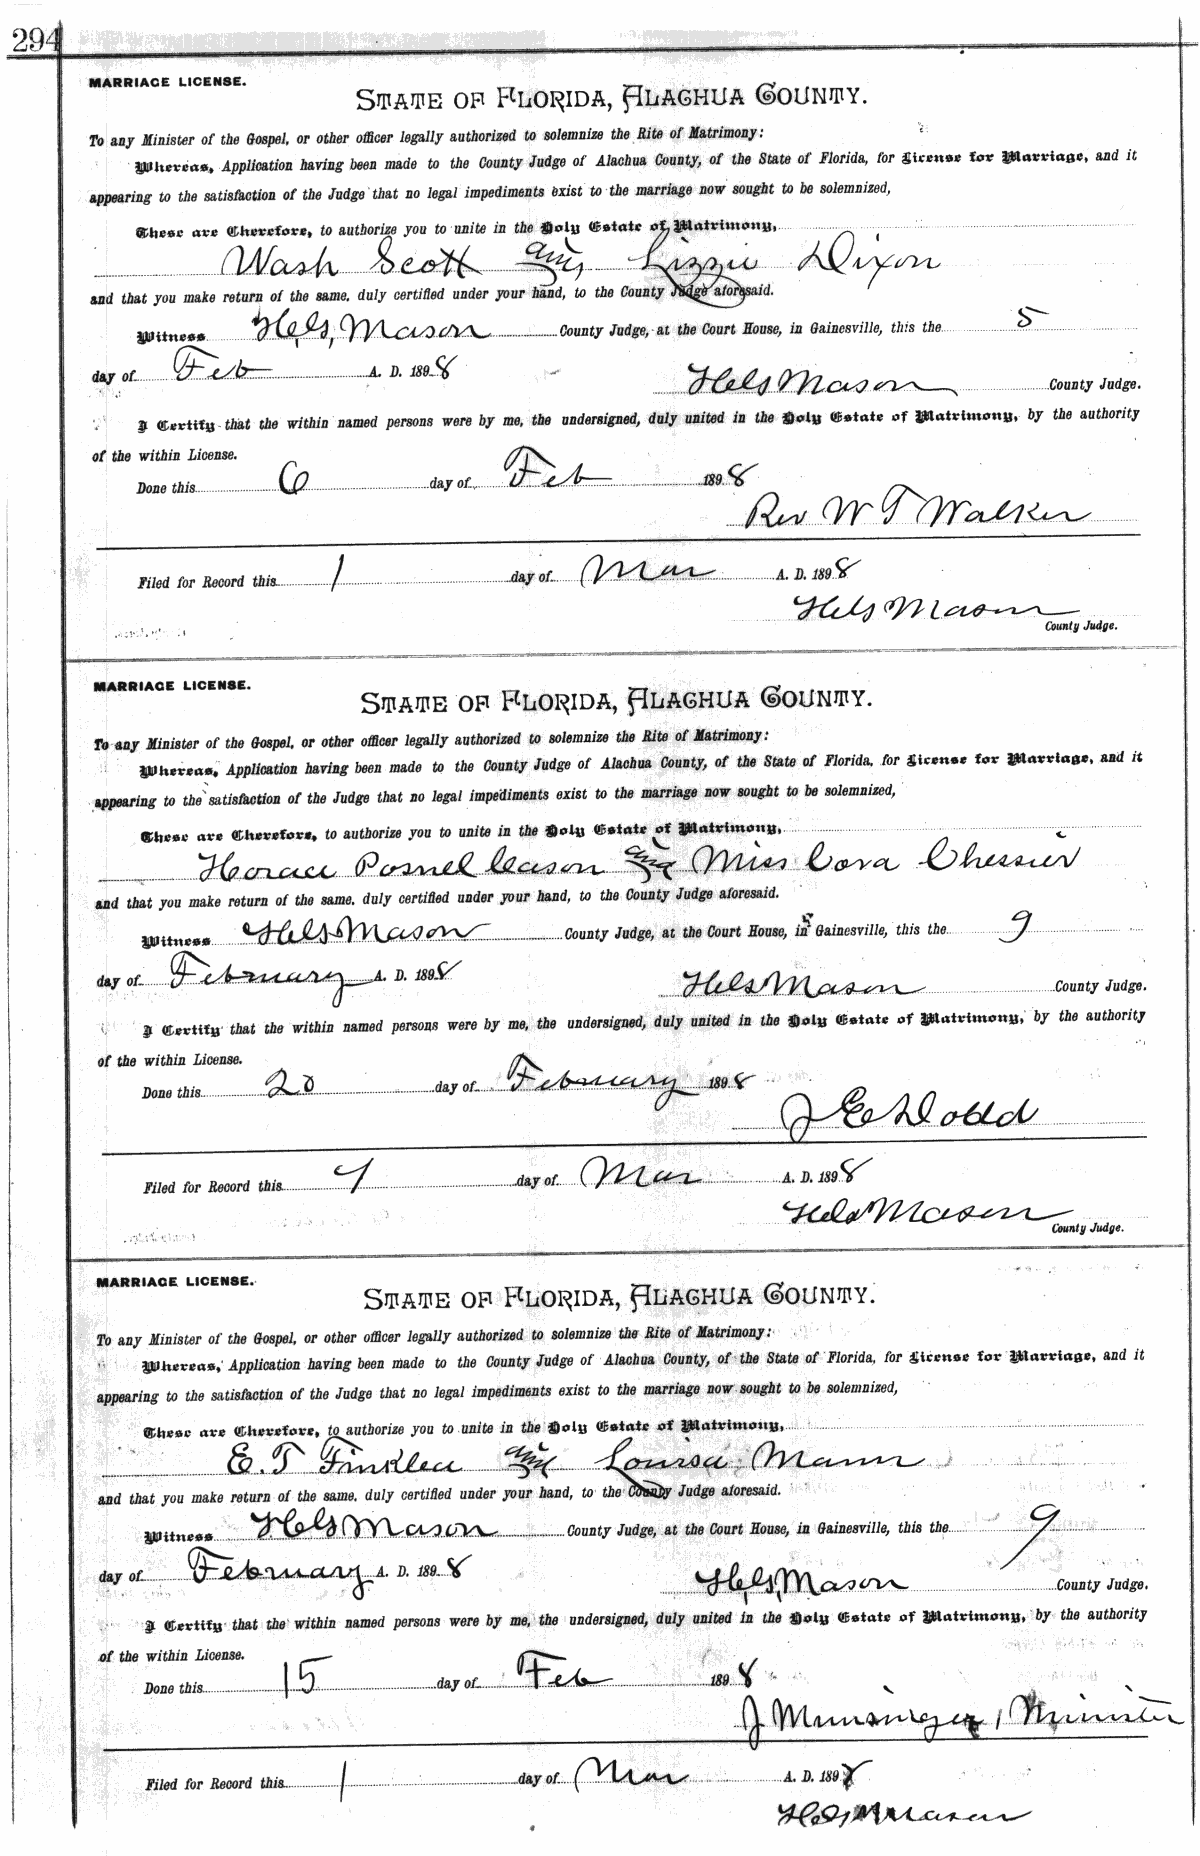 294
MARRIAGE LICENSE.
STATE OF FLORIDA, ALACHUA COUNTY.
To any Minister of the Gospel, or other officer legally authorized to solemnize the Rite of Matrimony:
Whereas, Application having been made to the County Judge of Alachua County, of the State of Florida, for License for Marriage, and it
appearing to the satisfaction of the Judge that no legal impediments exist to the marriage now sought to be solemnized,
These are Therefore, to authorize you to unite in the Holy Estate of Matrimony,
Wash Scott and Lizzie Dixon
and that you make return of the same, duly certified under your hand, to the County Judge aforesaid.
Witness Mason County Judge, at the Court House, in Gainesville, this the 5
day of Feb A. D. 1898
Mason County Judge.
I Certify that the within named persons were by me, the undersigned, duly united in the Holy Estate of Matrimony, by the authority
of the within License.
Done this 6 day of Feb 1898
Rev W T Walker
Filed for Record this 1 day of Mar A. D. 1898
Mason
County Judge.
MARRIAGE LICENSE.
STATE OF FLORIDA, ALACHUA COUNTY.
To any Minister of the Gospel, or other officer legally authorized to solemnize the Rite of Matrimony:
Whereas, Application having been made to the County Judge of Alachua County, of the State of Florida, for License for Marriage, and it
appearing to the satisfaction of the Judge that no legal impediments exist to the marriage now sought to be solemnized,
These are Therefore, to authorize you to unite in the Holy Estate of Matrimony,
Horace Cason and Miss Cora Chesser
and that you make return of the same, duly certified under your hand, to the County Judge aforesaid.
Witness Mason County Judge, at the Court House, in Gainesville, this the 9
day of February A. D. 1898
Mason County Judge.
I Certify that the within named persons were by me, the undersigned, duly united in the Holy Estate of Matrimony, by the authority
of the within License.
Done this 20 day of February 1898
J E Dodd
Filed for Record this 1 day of Mar A. D. 1898
Mason
County Judge.
MARRIAGE LICENSE.
STATE OF FLORIDA, ALACHUA COUNTY.
To any Minister of the Gospel, or other officer legally authorized to solemnize the Rite of Matrimony:
Whereas, Application having been made to the County Judge of Alachua County, of the State of Florida, for License for Marriage, and it
appearing to the satisfaction of the Judge that no legal impediments exist to the marriage now sought to be solemnized,
These are Therefore, to authorize you to unite in the Holy Estate of Matrimony,
E. T Finklea and Louisa Mann
and that you make return of the same, duly certified under your hand, to the County Judge aforesaid.
Witness Mason County Judge, at the Court House, in Gainesville, this the 9
day of February A. D. 1898
Mason County Judge.
I Certify that the within named persons were by me, the undersigned, duly united in the Holy Estate of Matrimony, by the authority
of the within License.
Done this 15 day of Feb 1898
J Munsinger, Minister
Filed for Record this 1 day of Mar A. D. 1898
Mason